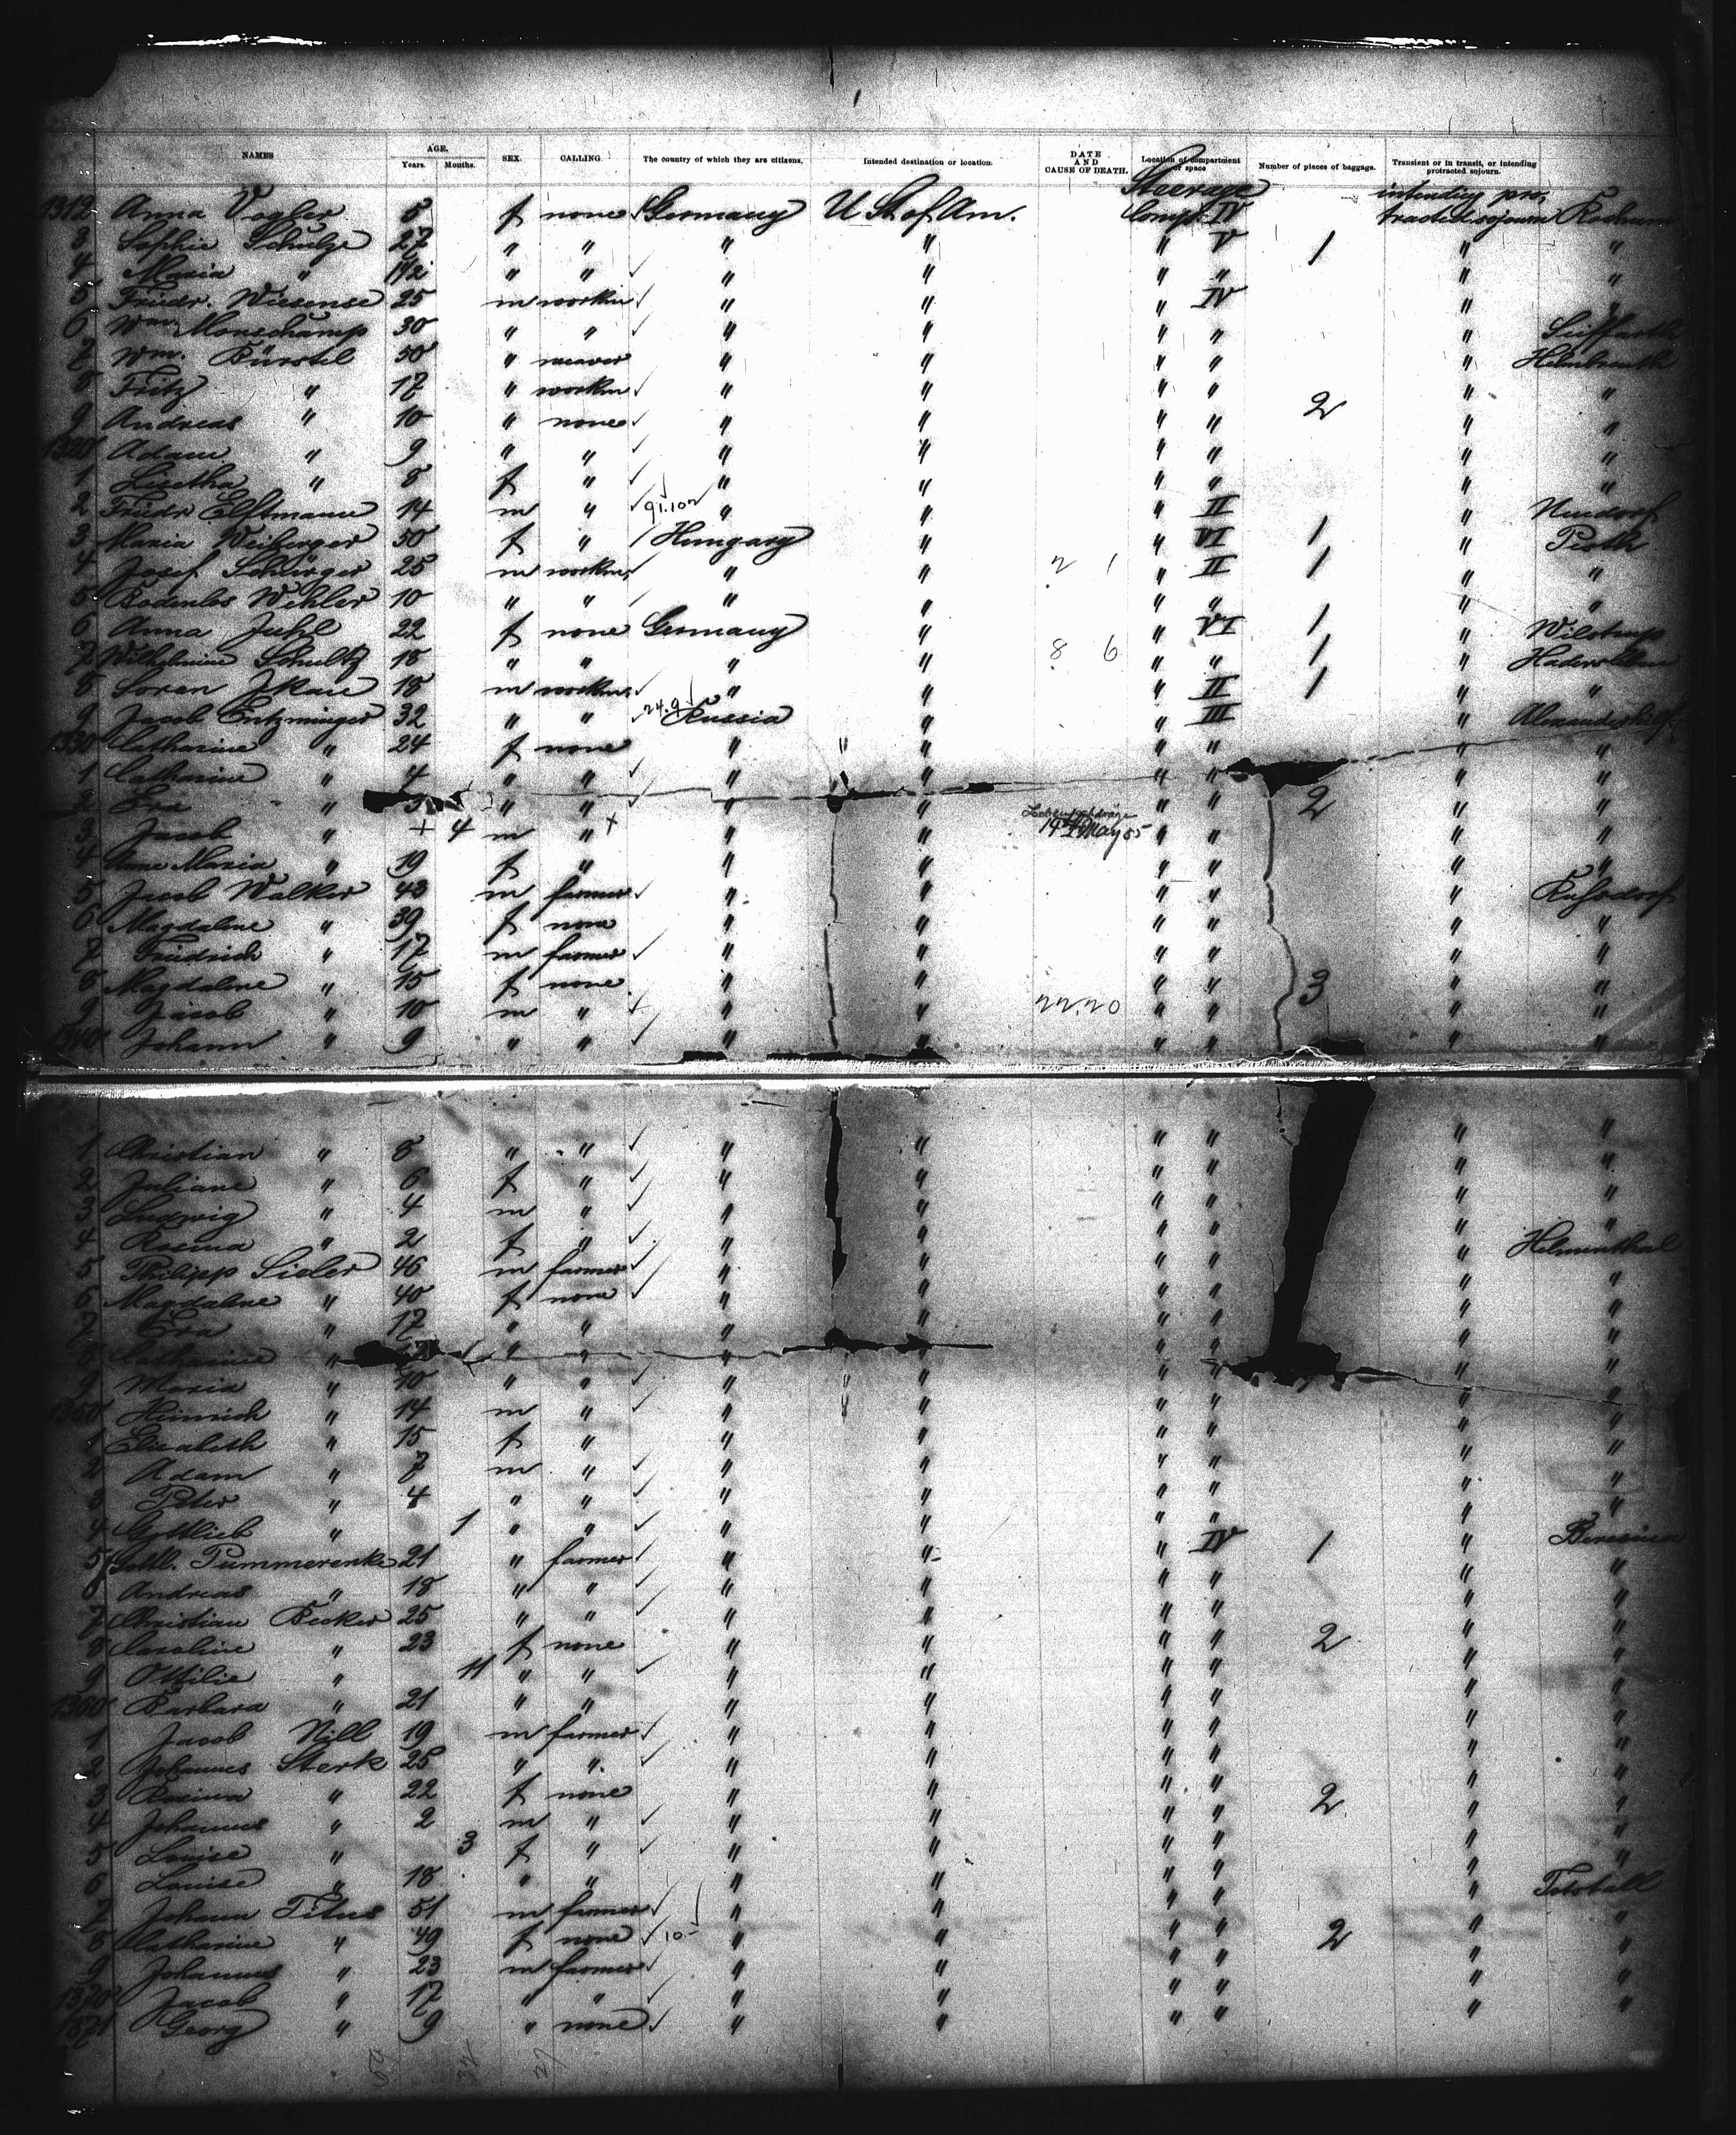 NAMES AGE. Years. Months. SEX. CALLING. The country of which they are citizens. Intended destination or location. DATE AND CAUSE OF DEATH. Location of compartment or space Number of pieces of baggage. Transient or in transit, or intending protracted sojourn.
Steerage intending pro-
1312 Anna Vogler 5 f none Germany U St of Am. Compt IV tracted sojourn
3 Sophie Schulze 27 " " " " " V 1 " "
4 Maria " " " " " " " " "
5 Friedr. Wiesense 25 m workm " " " IV " "
6 Wm Monschamp 30 " " " " " " "
7 Wm. Bürstel 50 " weaver " " " " "
8 Fritz " 17 " workm " " " " " "
9 Andreas " 10 " none " " " " 2 " "
1320 Adam " 9 " " " " " " " "
1 Lisetha " 8 f " " " " " " "
2 Friedr Elltmann 14 m " " " " II " Neudorf
3 Maria Weiberger 50 f " Hungary " " VI 1 " Pesth
4 Josef Schürger 25 m workm " " 2 1 " II 1 " "
5 Wehler 10 " " " " " " " "
6 Anna Juhl 22 f none Germany " " VI 1 " Wilstrup
7 Wilhelmine Schultz 18 " " " " 8 6 " " 1 " Hadersleben
8 Soren 18 m workm " " " II 1 " "
9 Jacob Entzminger 32 " " 24.9 Russia " " III "
1330 Catharine " 24 f none " " " " " "
1 Catharine " 4 " " " " " " " "
2 Eva " 3 " " " " " " 2 " "
3 Jacob " + 4 m " + " " 14th May 85 " " " "
4 Anne Maria " 19 f " " " " " " "
5 Jacob Walker 43 m farmer " " " " "
6 Magdaline " 39 f none " " " " " "
7 Friedrich " 17 m farmer " " " " " "
8 Magdaline " 15 f none " " " " 3 " "
9 Jacob " 10 m " " " 22.20 " " " "
1340 Johann " 9 " " " " " " " "
1 Christian " 8 " " " " " " " "
2 Juliane " 6 f " " " " " " "
3 Ludwig " 4 m " " " " " " "
4 Rosina " 2 f " " " " " " "
5 Philipp Sieler 46 m farmer " " " " "
6 Magdaline " 40 f none " " " " " "
7 Eva " 17 " " " " " " " "
8 Catharine " " " " " " " " "
9 Maria " 10 " " " " " " " "
1350 Heinrich " 14 m " " " " " " "
1 Elisabeth " 15 f " " " " " " "
2 Adam " 7 m " " " " " " "
3 Peter " 4 " " " " " " " "
4 Gottlieb " 1 " " " " " " " "
5 Gottl. Pummerenke 21 " farmer " " " IV 1 " Beresina
6 Andreas " 18 " " " " " " " "
7 Christian Becker 25 " " " " " " " "
8 Caroline " 23 f none " " " " 2 " "
9 Ottilie " 11 " " " " " " " "
1360 Barbara " 21 " " " " " " " "
1 Jacob Nill 19 m farmer " " " " " "
2 Johannes Sterk 25 " " " " " " " "
3 Rosina " 22 f none " " " " 2 " "
4 Johannes " 2 m " " " " " " "
5 Louise " 3 f " " " " " " "
6 Louise " 18 " " " " " " " "
7 Johann Titus 51 m farmer " " " " "
8 Catharine " 49 f none 10- " " " " 2 " "
9 Johannes " 23 m farmer " " " " " "
1370 Jacob " 17 " " " " " " " "
1371 Georg " 9 " none " " " " " "